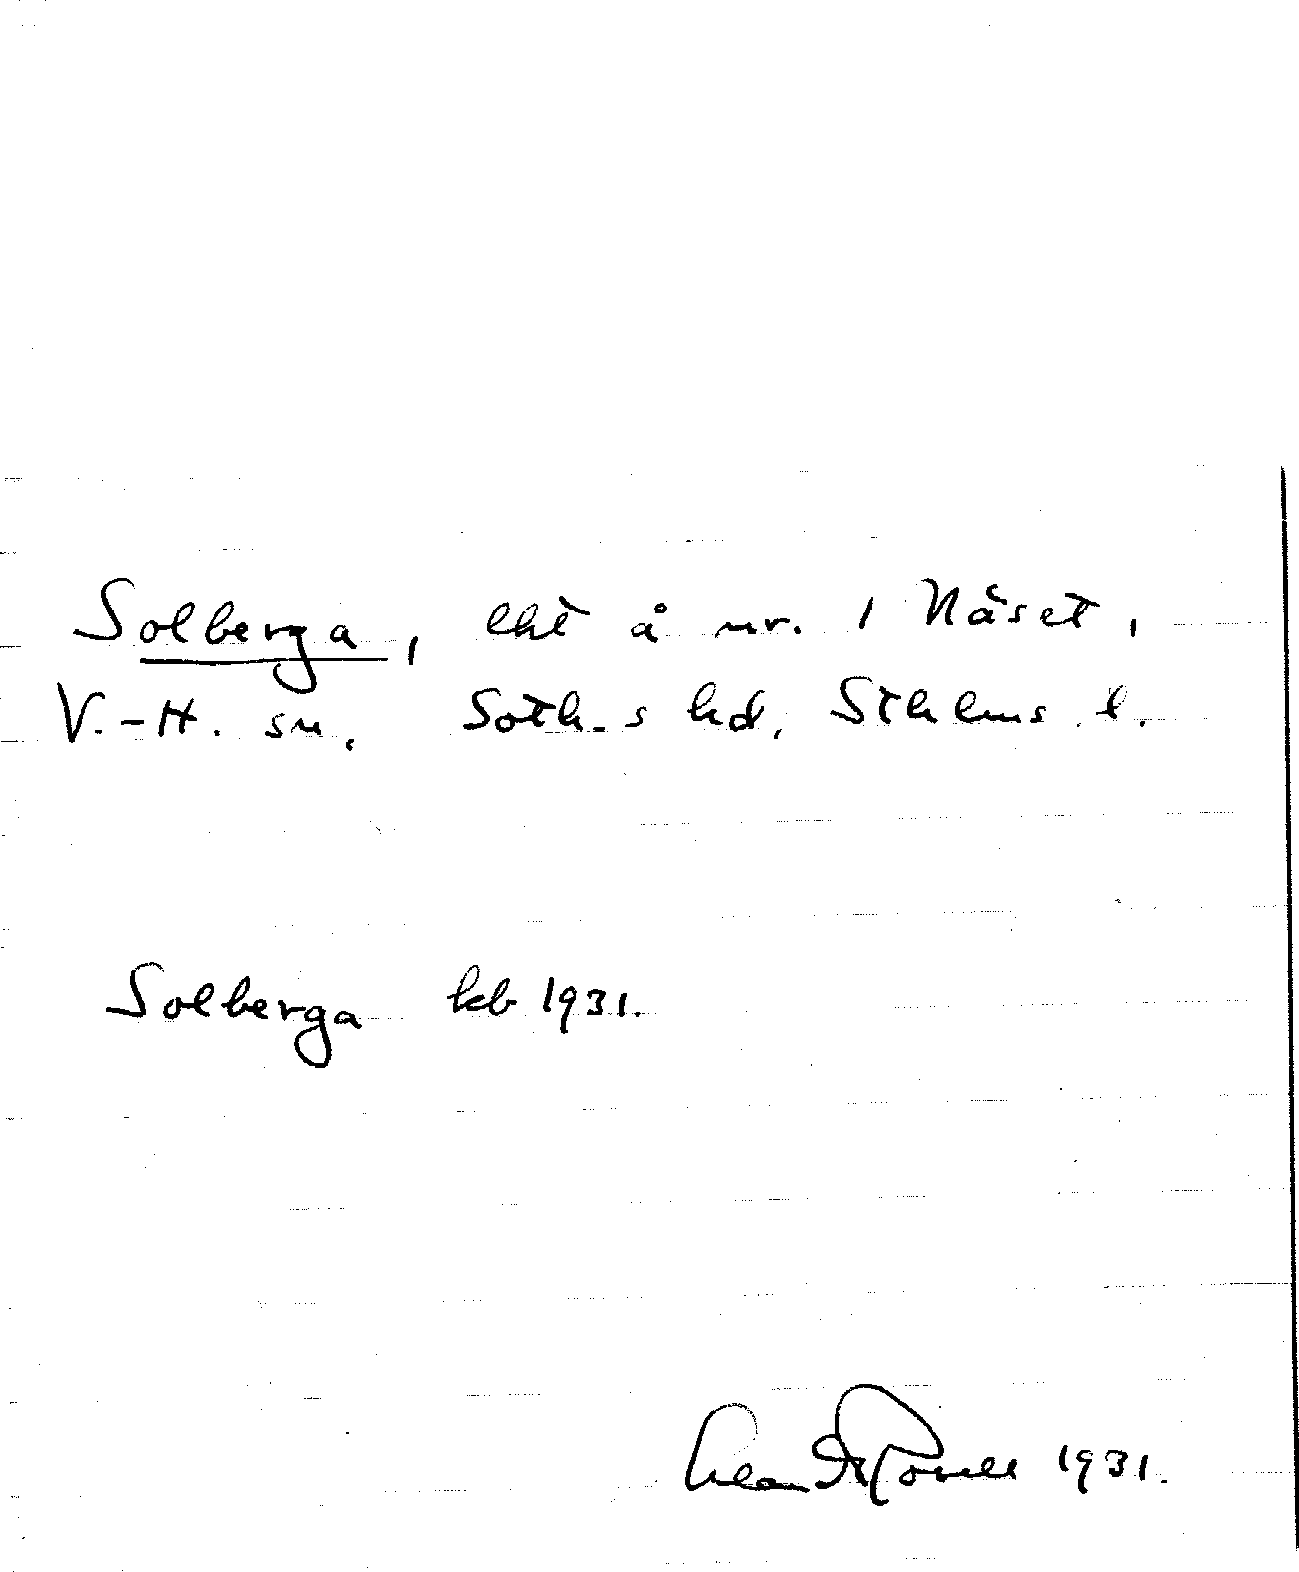 Solberga, lht å nr. 1 Näset,
V.-H. sn, Soth-s hd, Sthlms l.
Solberga kb 1931.
1931.